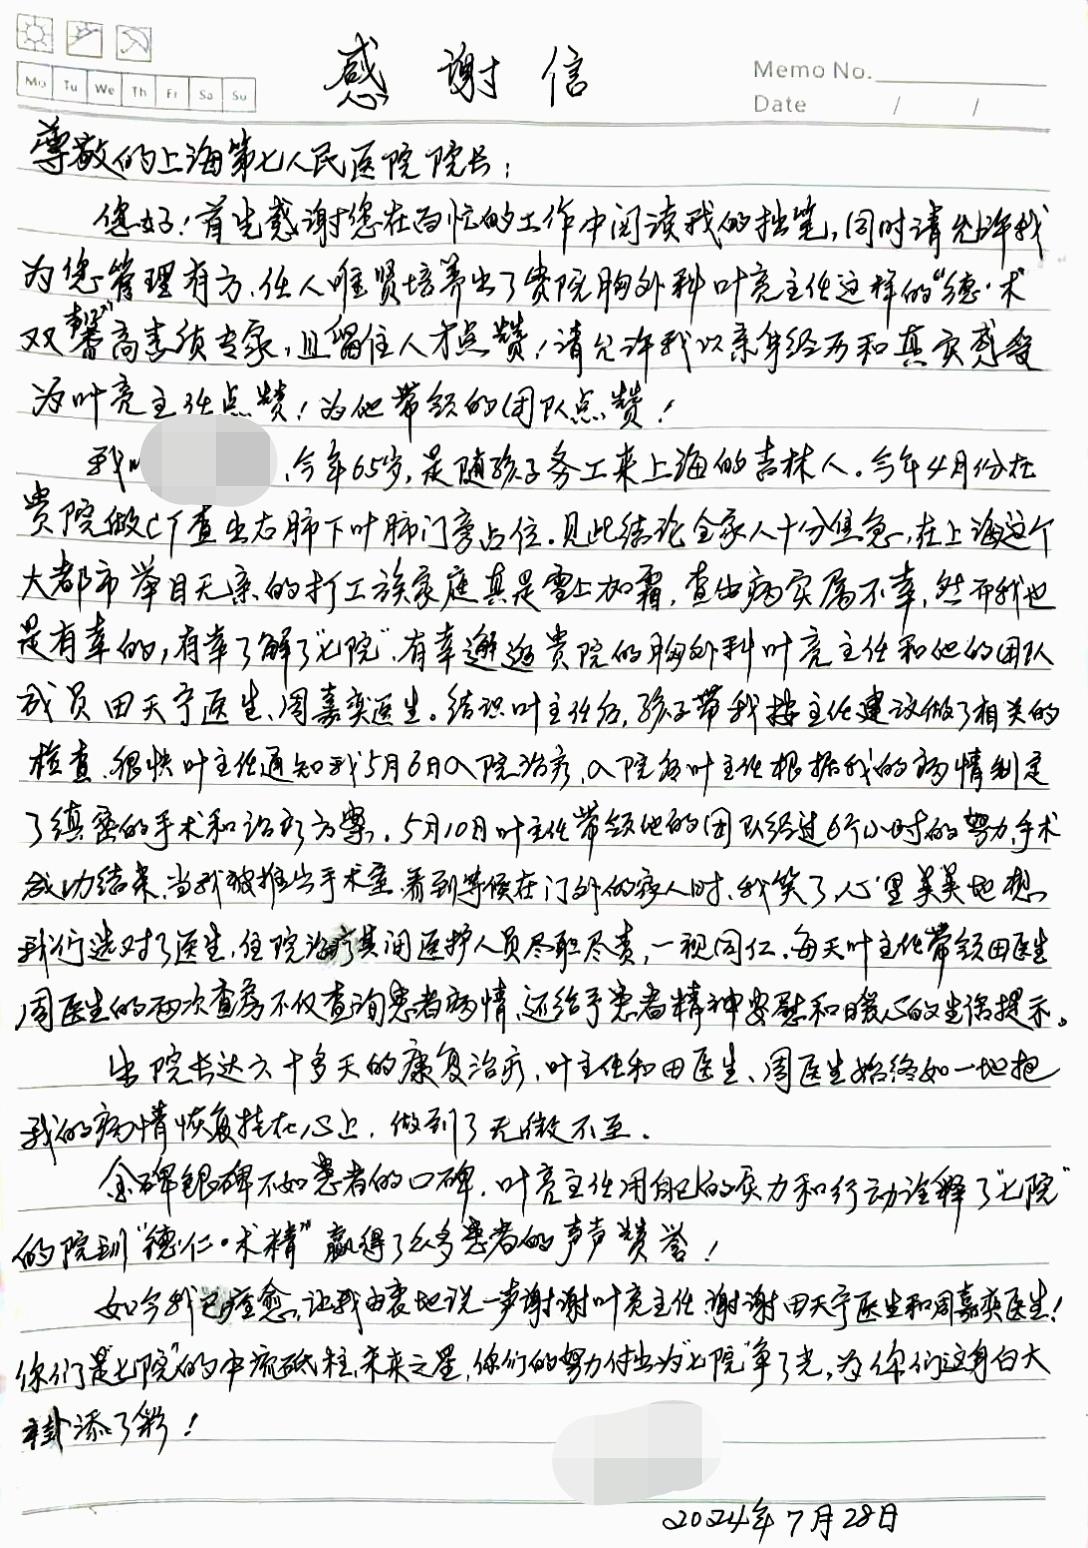 Mo Tu We Th Fr Sa Su
感谢信
Memo No.
Date / /
尊敬的上海第七人民医院院长:
您好!首先感谢您在百忙的工作中阅读我的拙笔,同时请允许我
为您管理有方、任人唯贤培养出了贵院胸外科叶亮主任这样的“德·术
双馨”高素质专家,且留住人才点赞!请允许我以亲身经历和真实感受
为叶亮主任点赞!为他带领的团队点赞!
我叫 ,今年65岁,是随孩子务工来上海的吉林人。今年4月份在
贵院做CT查出右肺下叶肺门旁占位。见此结论全家人十分焦急,在上海这个
大都市举目无亲的打工族家庭真是雪上加霜,查出病实属不幸,然而我也
是有幸的,有幸了解了“七院”,有幸邂逅贵院的胸外科叶亮主任和他的团队
成员田天宁医生、周嘉奕医生。结识叶主任后,孩子带我按主任建议做了相关的
检查,很快叶主任通知我5月6日入院治疗,入院后叶主任根据我的病情制定
了缜密的手术和治疗方案。5月10日叶主任带领他的团队经过6个小时的努力,手术
成功结束,当我被推出手术室,看到等候在门外的家人时,我笑了,心里美美地想
我们选对了医生,住院治疗其间医护人员尽职尽责,一视同仁。每天叶主任带领田医生
周医生的两次查房不仅查询患者病情,还给予患者精神安慰和暖心的生活提示。
出院长达六十多天的康复治疗,叶主任和田医生、周医生始终如一地把
我的病情恢复挂在心上,做到了无微不至。
金碑银碑不如患者的口碑,叶亮主任用自己的实力和行动诠释了“七院”
的院训“德仁·术精”赢得了众多患者的声声赞誉!
如今我已痊愈,让我由衷地说一声谢谢叶亮主任,谢谢田天宁医生和周嘉奕医生!
你们是“七院”的中流砥柱,未来之星,你们的努力付出为“七院”争了光,为你们这身白大
褂添了彩!
2024年7月28日